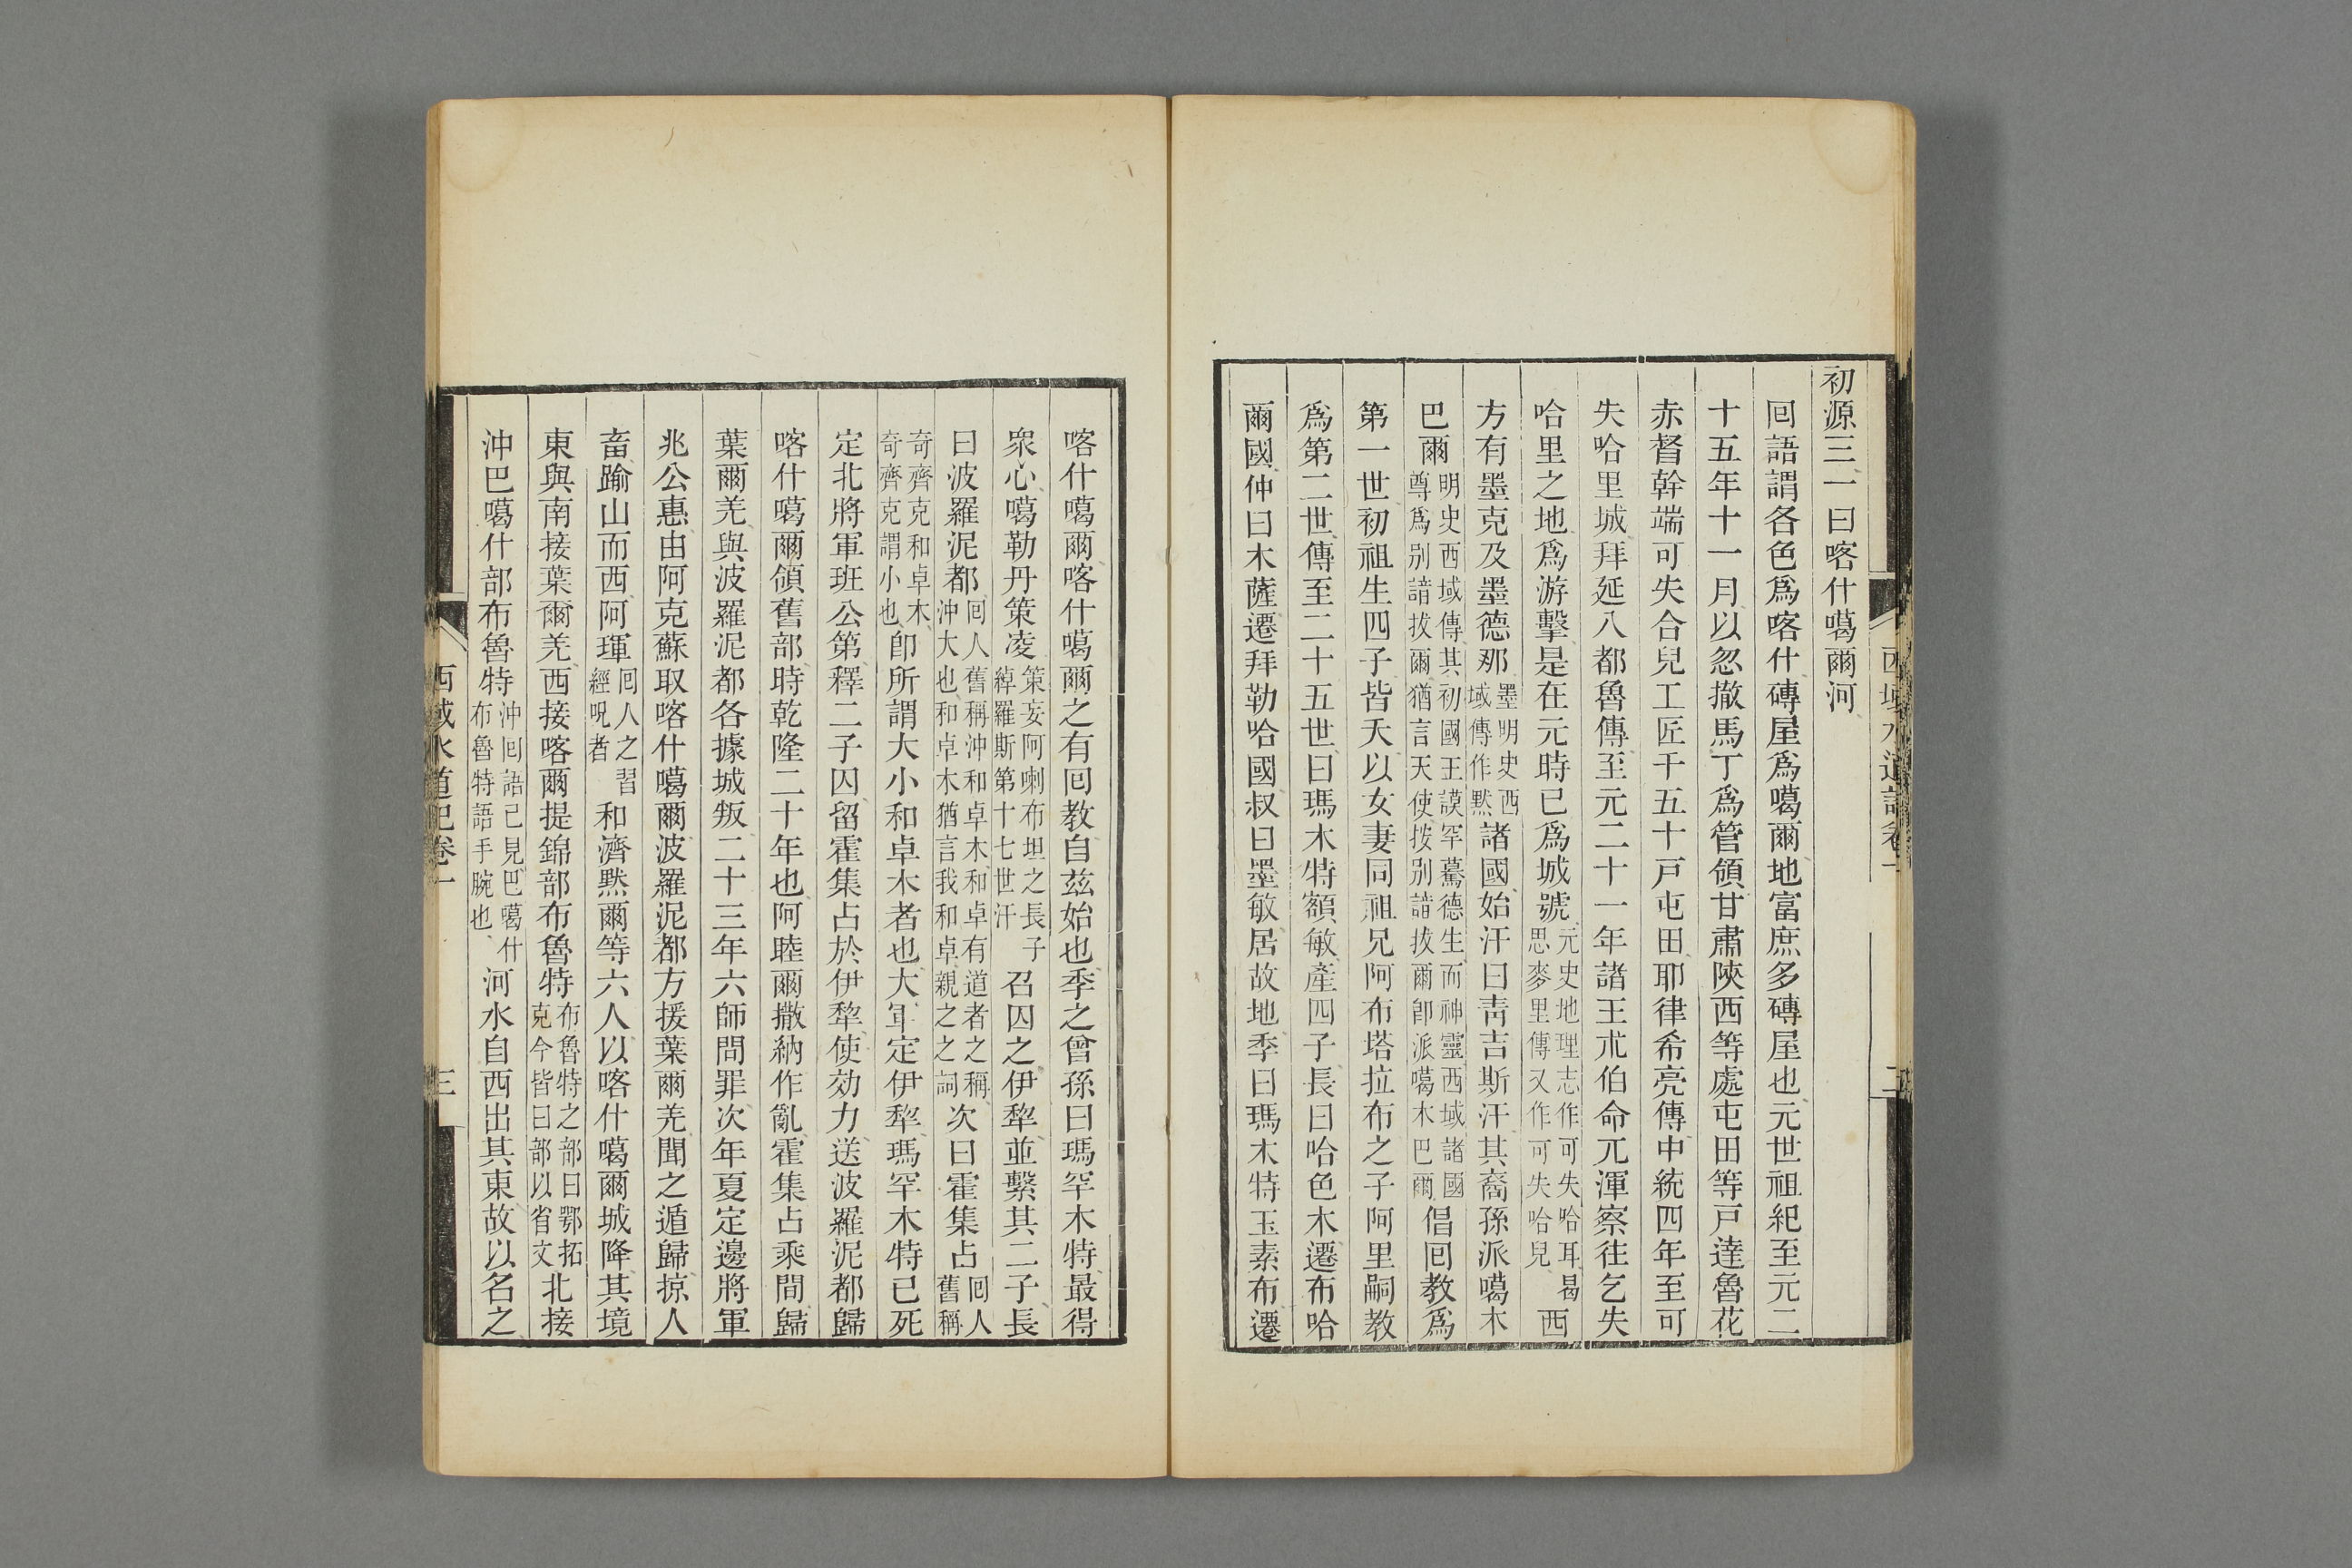 初源三一曰喀什噶爾河
囘語謂各色爲喀什磚屋爲噶爾地富庶多磚屋也元世祖紀至元二
十五年十一月以忽撒馬丁爲管領甘肅陝西等處屯田等戸達魯花
赤督斡端可失合兒工匠千五十戸屯田耶律希亮傳中統四年至可
失哈里城拜延八都魯傳至元二十一年諸王朮伯命兀渾察往乞失
哈里之地爲游擊是在元時已爲城號元史地理志作可失哈耳曷思麥里傳又作可失哈兒西
方有墨克及墨德那墨明史西域傳作黙諸國始汗曰青吉斯汗其裔孫派噶木
巴爾明史西域傳其初國王謨罕驀德生而神靈西域諸國尊爲别諳拔爾猶言天使按别諳拔爾卽派噶木巴爾倡囘教爲
第一世初祖生四子皆夭以女妻同祖兄阿布塔拉布之子阿里嗣教
爲第二世傳至二十五世曰瑪木特額敏產四子長曰哈色木遷布哈
爾國仲曰木薩遷拜勒哈國叔曰墨敏居故地季曰瑪木特玉素布遷
西域水道記卷一
二
喀什噶爾喀什噶爾之有囘教自玆始也季之曾孫曰瑪罕木特最得
衆心噶勒丹策凌策妄阿喇布坦之長子綽羅斯第十七世汗召囚之伊犂並繫其二子長
曰波羅泥都囘人舊稱沖和卓木和卓有道者之稱沖大也和卓木猶言我和卓親之之詞次曰霍集占囘人舊稱
奇齊克和卓木奇齊克謂小也卽所謂大小和卓木者也大軍定伊犂瑪罕木特已死
定北將軍班公第釋二子囚留霍集占於伊犂使効力送波羅泥都歸
喀什噶爾領舊部時乾隆二十年也阿睦爾撒納作亂霍集占乘間歸
葉爾羌與波羅泥都各據城叛二十三年六師問罪次年夏定邊將軍
兆公惠由阿克蘇取喀什噶爾波羅泥都方援葉爾羌聞之遁歸掠人
畜踰山而西阿琿囘人之習經呪者和濟黙爾等六人以喀什噶爾城降其境
東與南接葉爾羌西接喀爾提錦部布魯特布魯特之部曰鄂拓克今皆曰部以省文北接
沖巴噶什部布魯特沖囘語已見巴噶什布魯特語手腕也河水自西出其東故以名之
西域水道記卷一
三